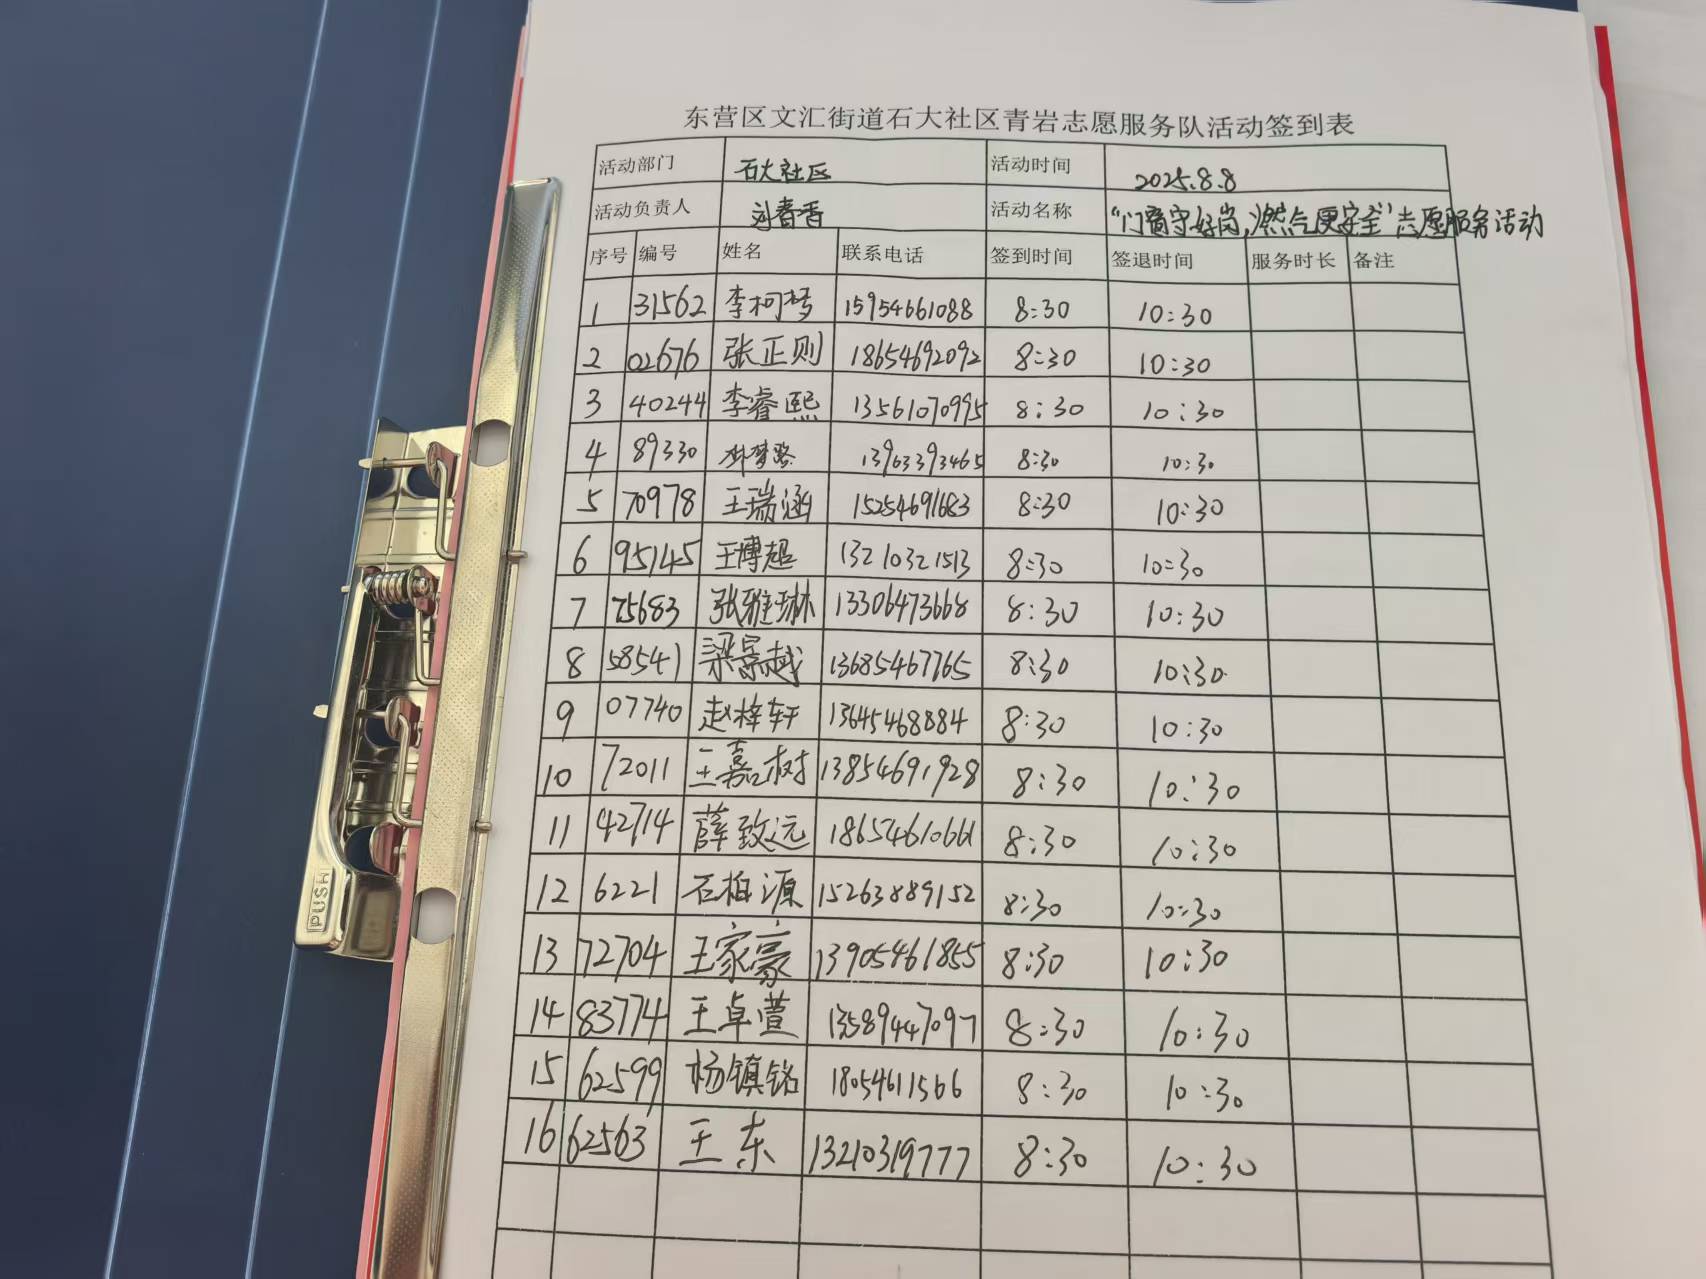 东营区文汇街道石大社区青岩志愿服务队活动签到表
活动部门 石大社区 活动时间 2025.8.8
活动负责人 刘春香 活动名称 “门窗守好岗,燃气更安全”志愿服务活动
序号 编号 姓名 联系电话 签到时间 签退时间 服务时长 备注
1 31562 李柯梦 15954661088 8:30 10:30
2 02676 张正则 18654692092 8:30 10:30
3 40244 李睿熙 13561070995 8:30 10:30
4 89330 13963393465 8:30 10:30
5 70978 王瑞涵 15254691683 8:30 10:30
6 95145 王博超 13210321513 8:30 10:30
7 75683 张雅琳 13306473668 8:30 10:30
8 58541 梁景越 13685467765 8:30 10:30
9 07740 赵梓轩 13645468884 8:30 10:30
10 72011 王嘉树 13854691928 8:30 10:30
11 42714 薛致远 18654610661 8:30 10:30
12 6221 石柏源 15263889152 8:30 10:30
13 72704 王家豪 13905461855 8:30 10:30
14 83774 王卓萱 13589447097 8:30 10:30
15 62599 杨镇铭 18054611566 8:30 10:30
16 62563 王东 13210319777 8:30 10:30
PUSH